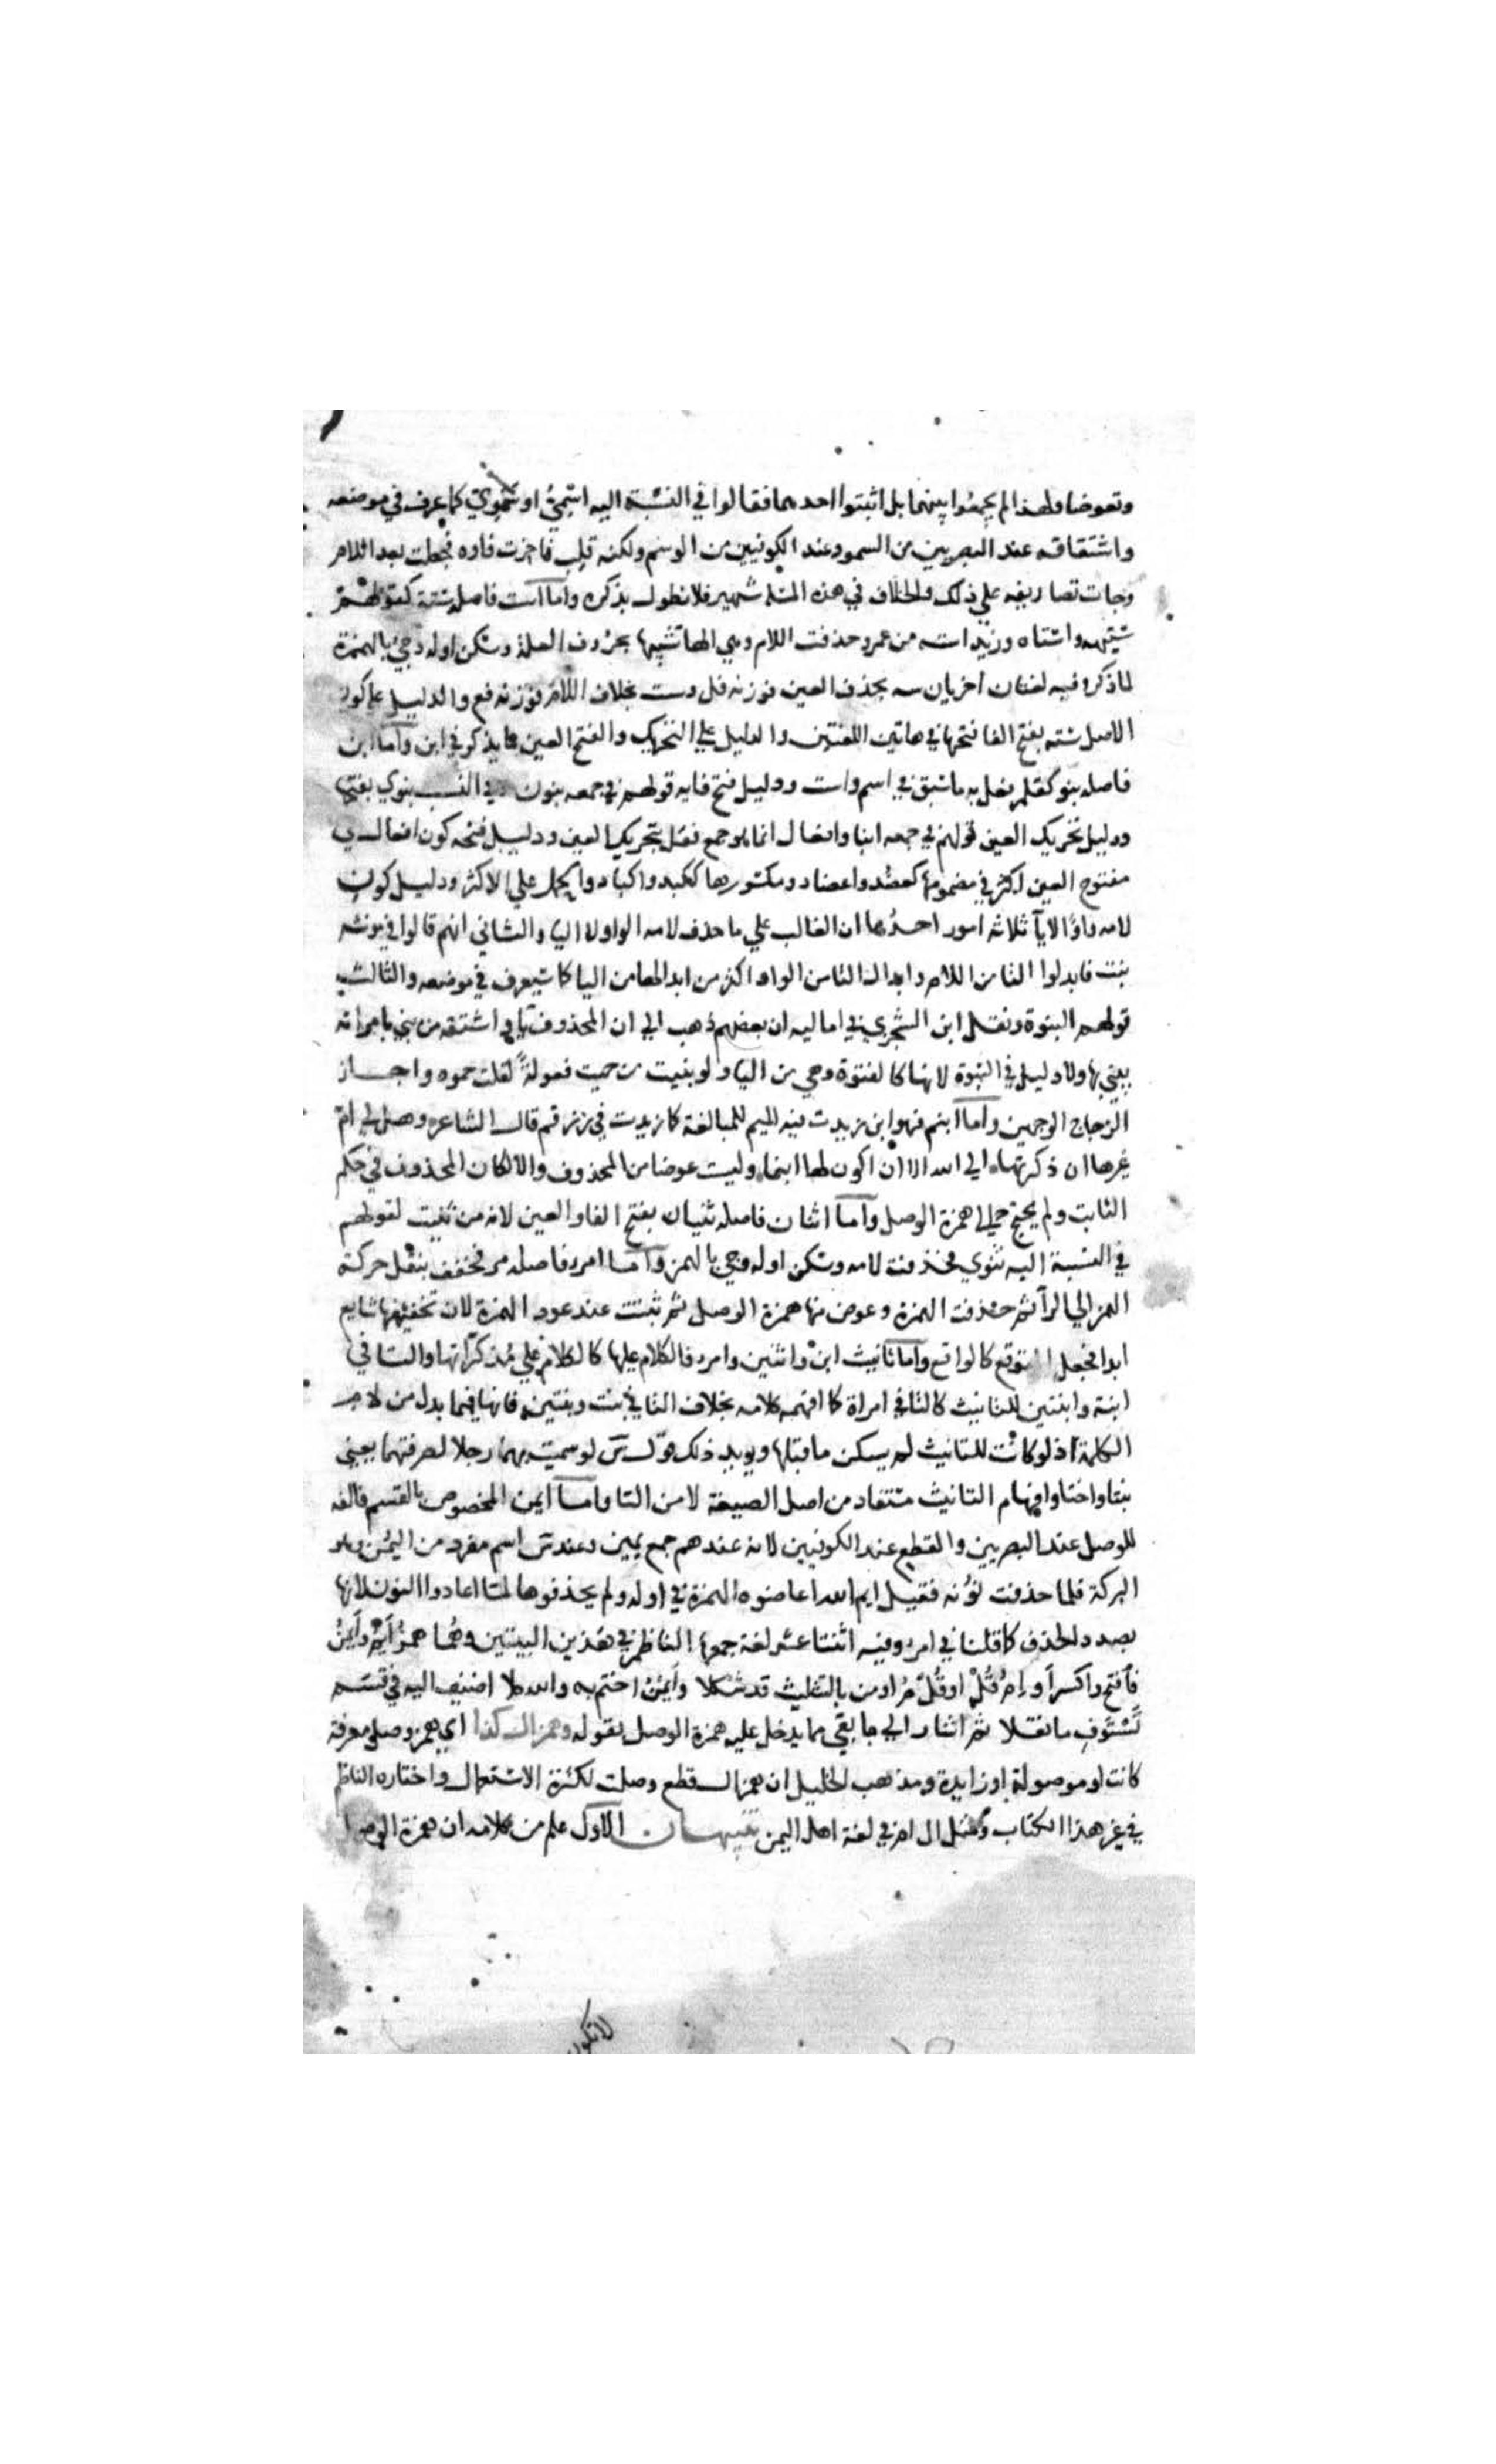 وتعويضا ولهذا لم يجمعوا بينهما بل اثبتوا احدهما فقالوا في النسبة اليه اسمي او سموي كما عرف في موضعه
واشتقاقه عند البصريين من السمو وعند الكوفيين من الوسم ولكنه قلب فاخرت فاوه فجعلت بعد اللام
وجات تصاريفه علي ذلك والخلاف في هذه المسلة شهير فلا نطول بذكره واما است فاصله سته كقولهم
ستيهه واستاه وزيد استه من عمرو حذفت اللام وهي الها تشبيها بحروف العلة وسكن اوله وجي بالهمزة
لما ذكر وفيه لغتان اخريان سه بحذف العين فوزنه فل وست بحذف اللام فوزنه فع والدليل علي كون
الاصل سته بفتح الفا فتحها في هاتين اللغتين والدليل علي التحريك والفتح العين ما يذكر في ابن واما ابن
فاصله بنو كقلم فعل به ما سبق في اسم واست ودليل فتح فايه قولهم في جمعه بنون وفي النسب بنوي بفتحها
ودليل تحريك العين قولهم في جمعه ابنا وافعال انما هو جمع فعل بتحريك العين ودليل فتحه كون افعال في
مفتوح العين اكثر في مضمومها كعضد واعضاد ومكسورها ككبد واكباد والحمل علي الاكثر ودليل كون
لامه واوا لا يا ثلاثة امور احدها ان الغالب علي ما حذف لامه الواو لا اليا والثاني انهم قالوا في مونثه
بنت فابدلوا التا من اللام وابدال التا من الواو اكثر من ابدالها من اليا كما سيعرف في موضعه والثالث
قولهم البنوة ونقل ابن الشجري في اماليه ان بعضهم ذهب الي ان المحذوف يا اشتقه من بني بامراته
يبني بها ولا دليل في البنوة لانها كالفتوة وهي من اليا ولو بنيت من حميت فعولة لقلت حموه واجاز
الزجاج الوجهين واما ابنم فهو ابن زيدت فيه الميم للمبالغة كما زيدت في زرقم قال الشاعر وهل لي ام
غيرها ان ذكرتها ابي الله الا ان اكون لها ابنما وليست عوضا من المحذوف والا لكان المحذوف في حكم
الثابت ولم يحتج الي همزة الوصل واما اثنان فاصله ثنيان بفتح الفا والعين لانه من ثنيت لقولهم
في النسبة اليه ثنوي فحذفت لامه وسكن اوله وجي بالهمز واما امرو فاصله مرء فخفف بنقل حركة
الهمز الي الرا ثم حذفت الهمزة وعوض منها همزة الوصل ثم ثبتت عند عود الهمزة لان تخفيفها شايع
ابدا فجعل المتوقع كالواقع واما تانيث ابن واثنين وامرو فالكلام عليها كالكلام علي مذكراتها والتا في
ابنة واثنتين للتانيث كالتا في امراة كما افهمه كلامه بخلاف التا في بنت وثنتين فانها فيهما بدل من لام
الكلمة اذ لو كانت للتانيث لم يسكن ما قبلها ويويد ذلك قول س لو سميت بهما رجلا لصرفتهما يعني
بنتا واختا وافهام التانيث مستفاد من اصل الصيغة لا من التا واما ايمن المخصوص بالقسم فالفه
للوصل عند البصريين والقطع عند الكوفيين لانه عندهم جمع يمين وعند س اسم مفرد من اليمن وهو
البركة فلما حذفت نونه فقيل ايم الله اعاضوه الهمزة في اوله ولم يحذفوها لما اعادوا النون لانها
بصدد الحذف كما قلنا في امرو وفيه اثنتا عشر لغة جمعها الناظم في هذين البيتين وهما همز ايم وايمن
فافتح واكسر او ام قل او قل م او من بالتثليث قد شكلا وايمن اختم به والله كلا اضف اليه في قسم
تستوف ما نقلا ثم اشار الي ما بقي مما يدخل عليه همزة الوصل بقوله وهمز ال كذا اي همز وصل معرفة
كانت او موصولة او زايدة ومذهب الخليل ان همز ال قطع وصلت لكثرة الاستعمال واختاره الناظم
في غير هذا الكتاب ومثل ال ام في لغة اهل اليمن تنبيهان الاول علم من كلامه ان همزة الوصل
لا تكون